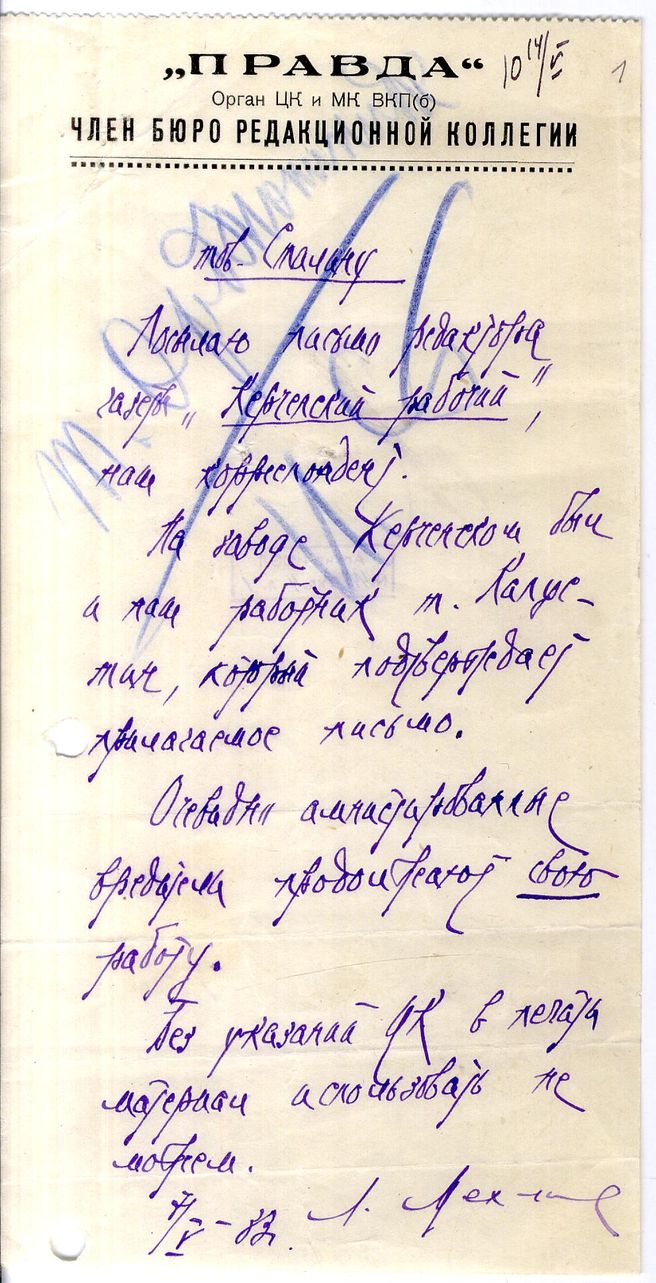 „ПРАВДА“
Орган ЦК и МК ВКП(б)
ЧЛЕН БЮРО РЕДАКЦИОННОЙ КОЛЛЕГИИ
10 14/V
1
т. Орджоникидзе
И С
тов. Сталину
Посылаю письмо редактора
газеты „Керченский рабочий“,
наш корреспондент.
На заводе Керченском был
и наш работник т. Капус-
тин, который подтверждает
прилагаемое письмо.
Очевидно амнистированные
вредители продолжают свою
работу.
Без указаний ЦК в печати
материал использовать не
можем.
Л. Мехлис